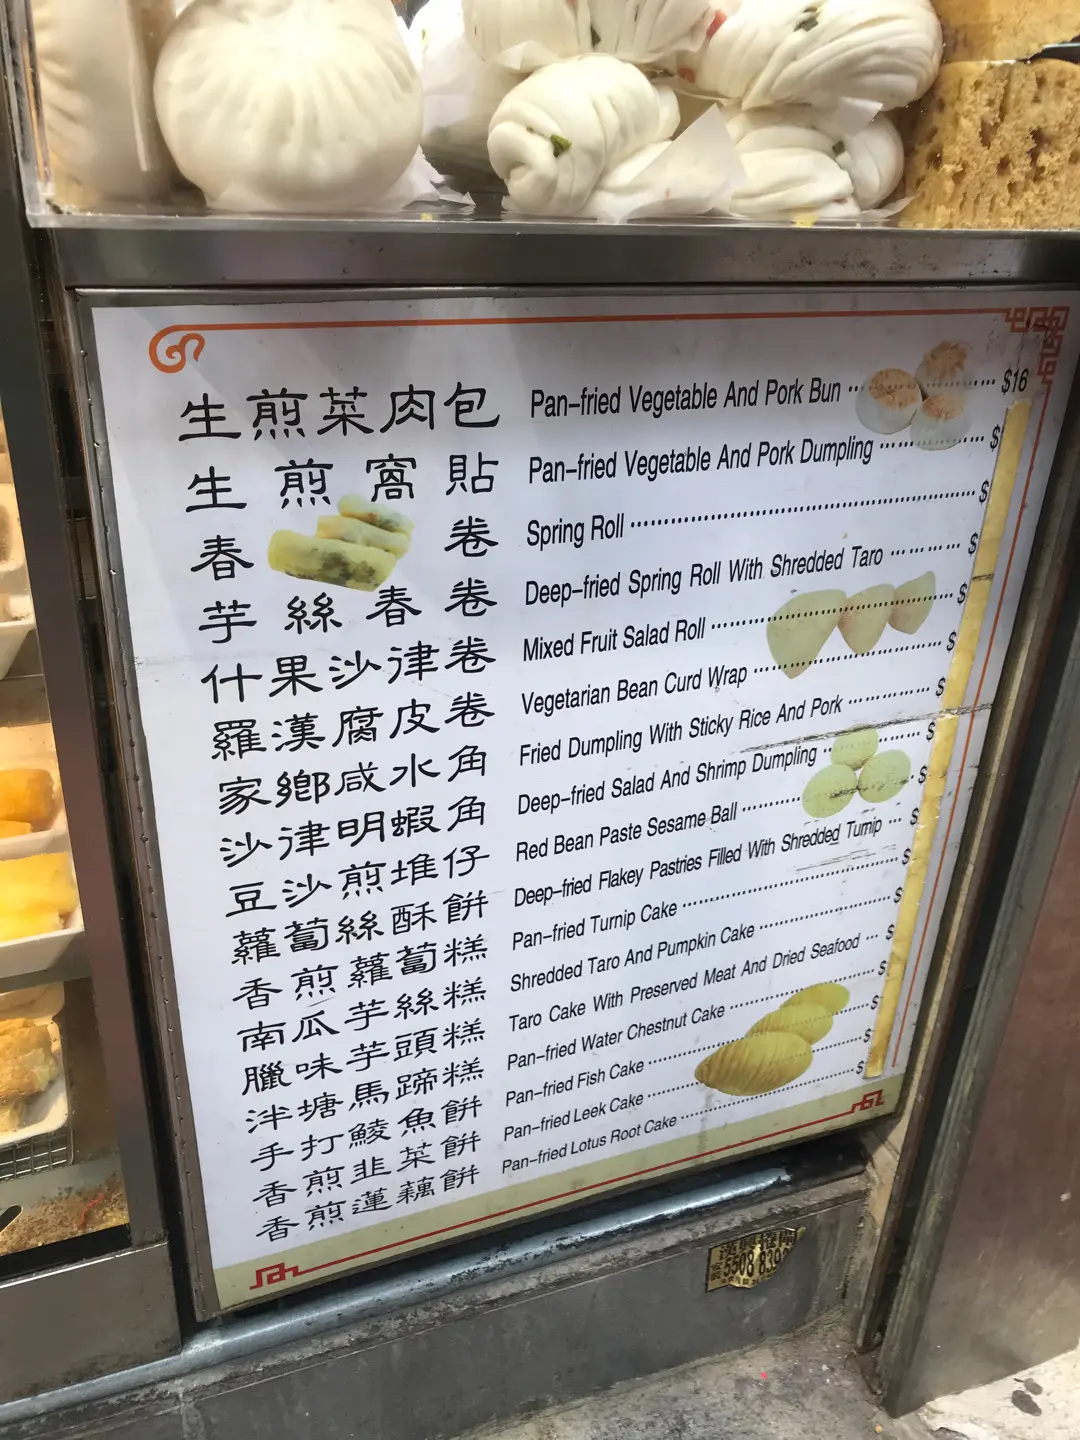 生煎菜肉包 Pan-fried Vegetable And Pork Bun $16
生煎窩貼 Pan-fried Vegetable And Pork Dumpling $
春卷 Spring Roll $
芋絲春卷 Deep-fried Spring Roll With Shredded Taro $
什果沙律卷 Mixed Fruit Salad Roll $
羅漢腐皮卷 Vegetarian Bean Curd Wrap $
家鄉咸水角 Fried Dumpling With Sticky Rice And Pork $
沙律明蝦角 Deep-fried Salad And Shrimp Dumpling $
豆沙煎堆仔 Red Bean Paste Sesame Ball $
蘿蔔絲酥餅 Deep-fried Flakey Pastries Filled With Shredded Turnip $
香煎蘿蔔糕 Pan-fried Turnip Cake $
南瓜芋絲糕 Shredded Taro And Pumpkin Cake $
臘味芋頭糕 Taro Cake With Preserved Meat And Dried Seafood $
泮塘馬蹄糕 Pan-fried Water Chestnut Cake $
手打鯪魚餅 Pan-fried Fish Cake $
香煎韭菜餅 Pan-fried Leek Cake $
香煎蓮藕餅 Pan-fried Lotus Root Cake $
5508 839